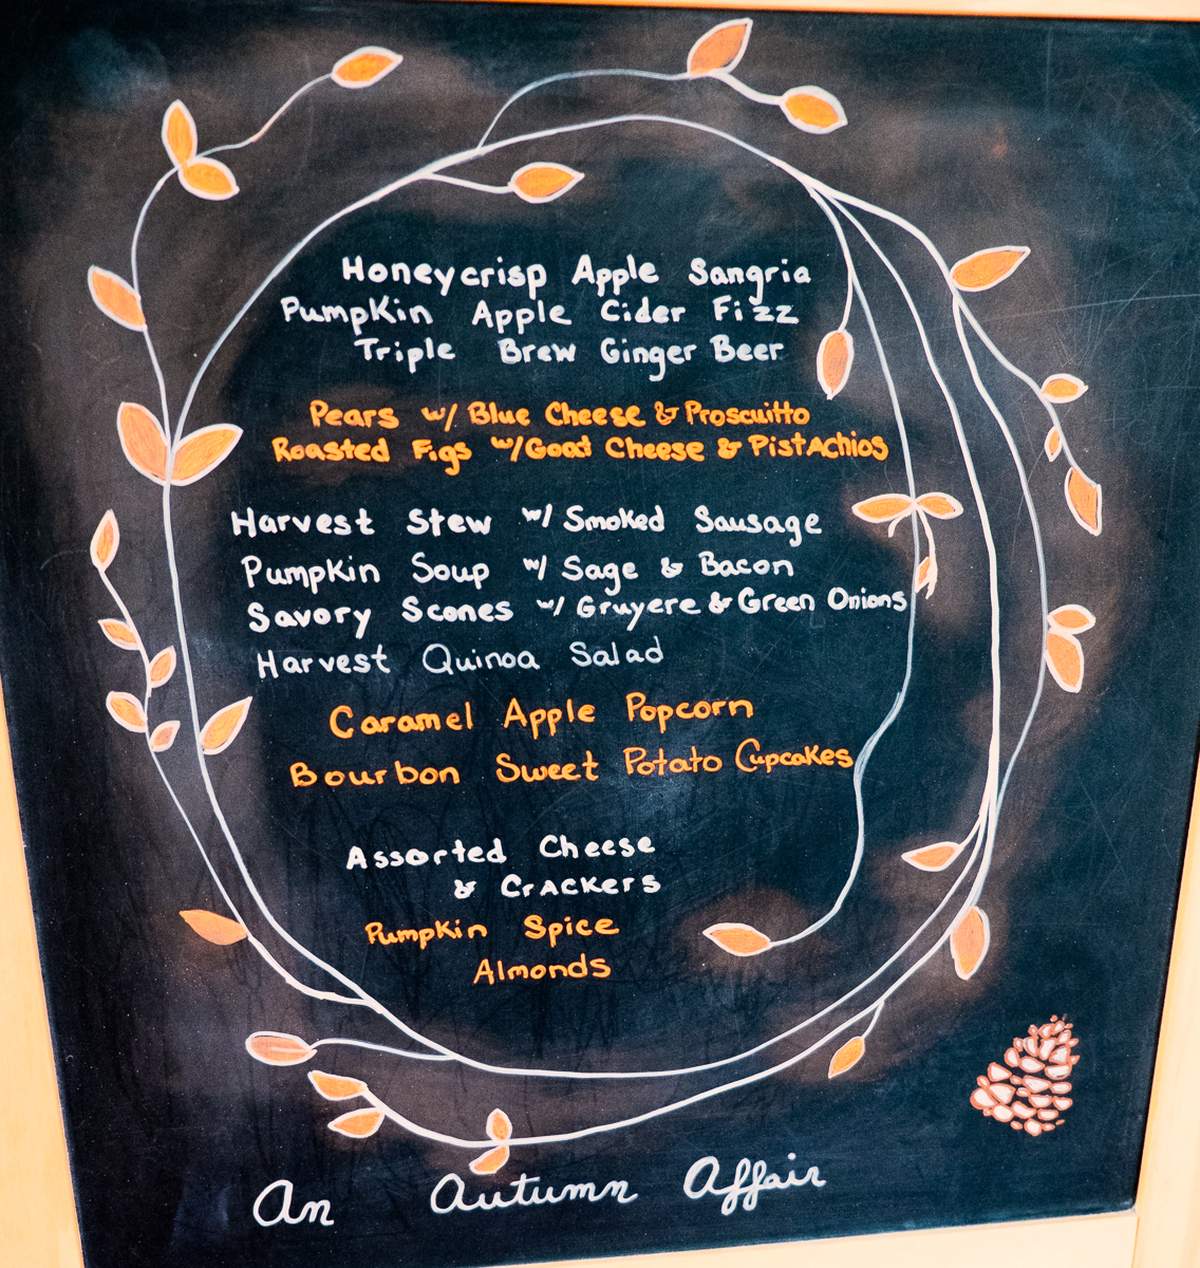 Honeycrisp Apple Sangria
Pumpkin Apple Cider Fizz
Triple Brew Ginger Beer
Pears w/ Blue Cheese & Proscuitto
Roasted Figs w/ Goat Cheese & Pistachios
Harvest Stew w/ Smoked Sausage
Pumpkin Soup w/ Sage & Bacon
Savory Scones w/ Gruyere & Green Onions
Harvest Quinoa Salad
Caramel Apple Popcorn
Bourbon Sweet Potato Cupcakes
Assorted Cheese
& Crackers
Pumpkin Spice
Almonds
An Autumn Affair